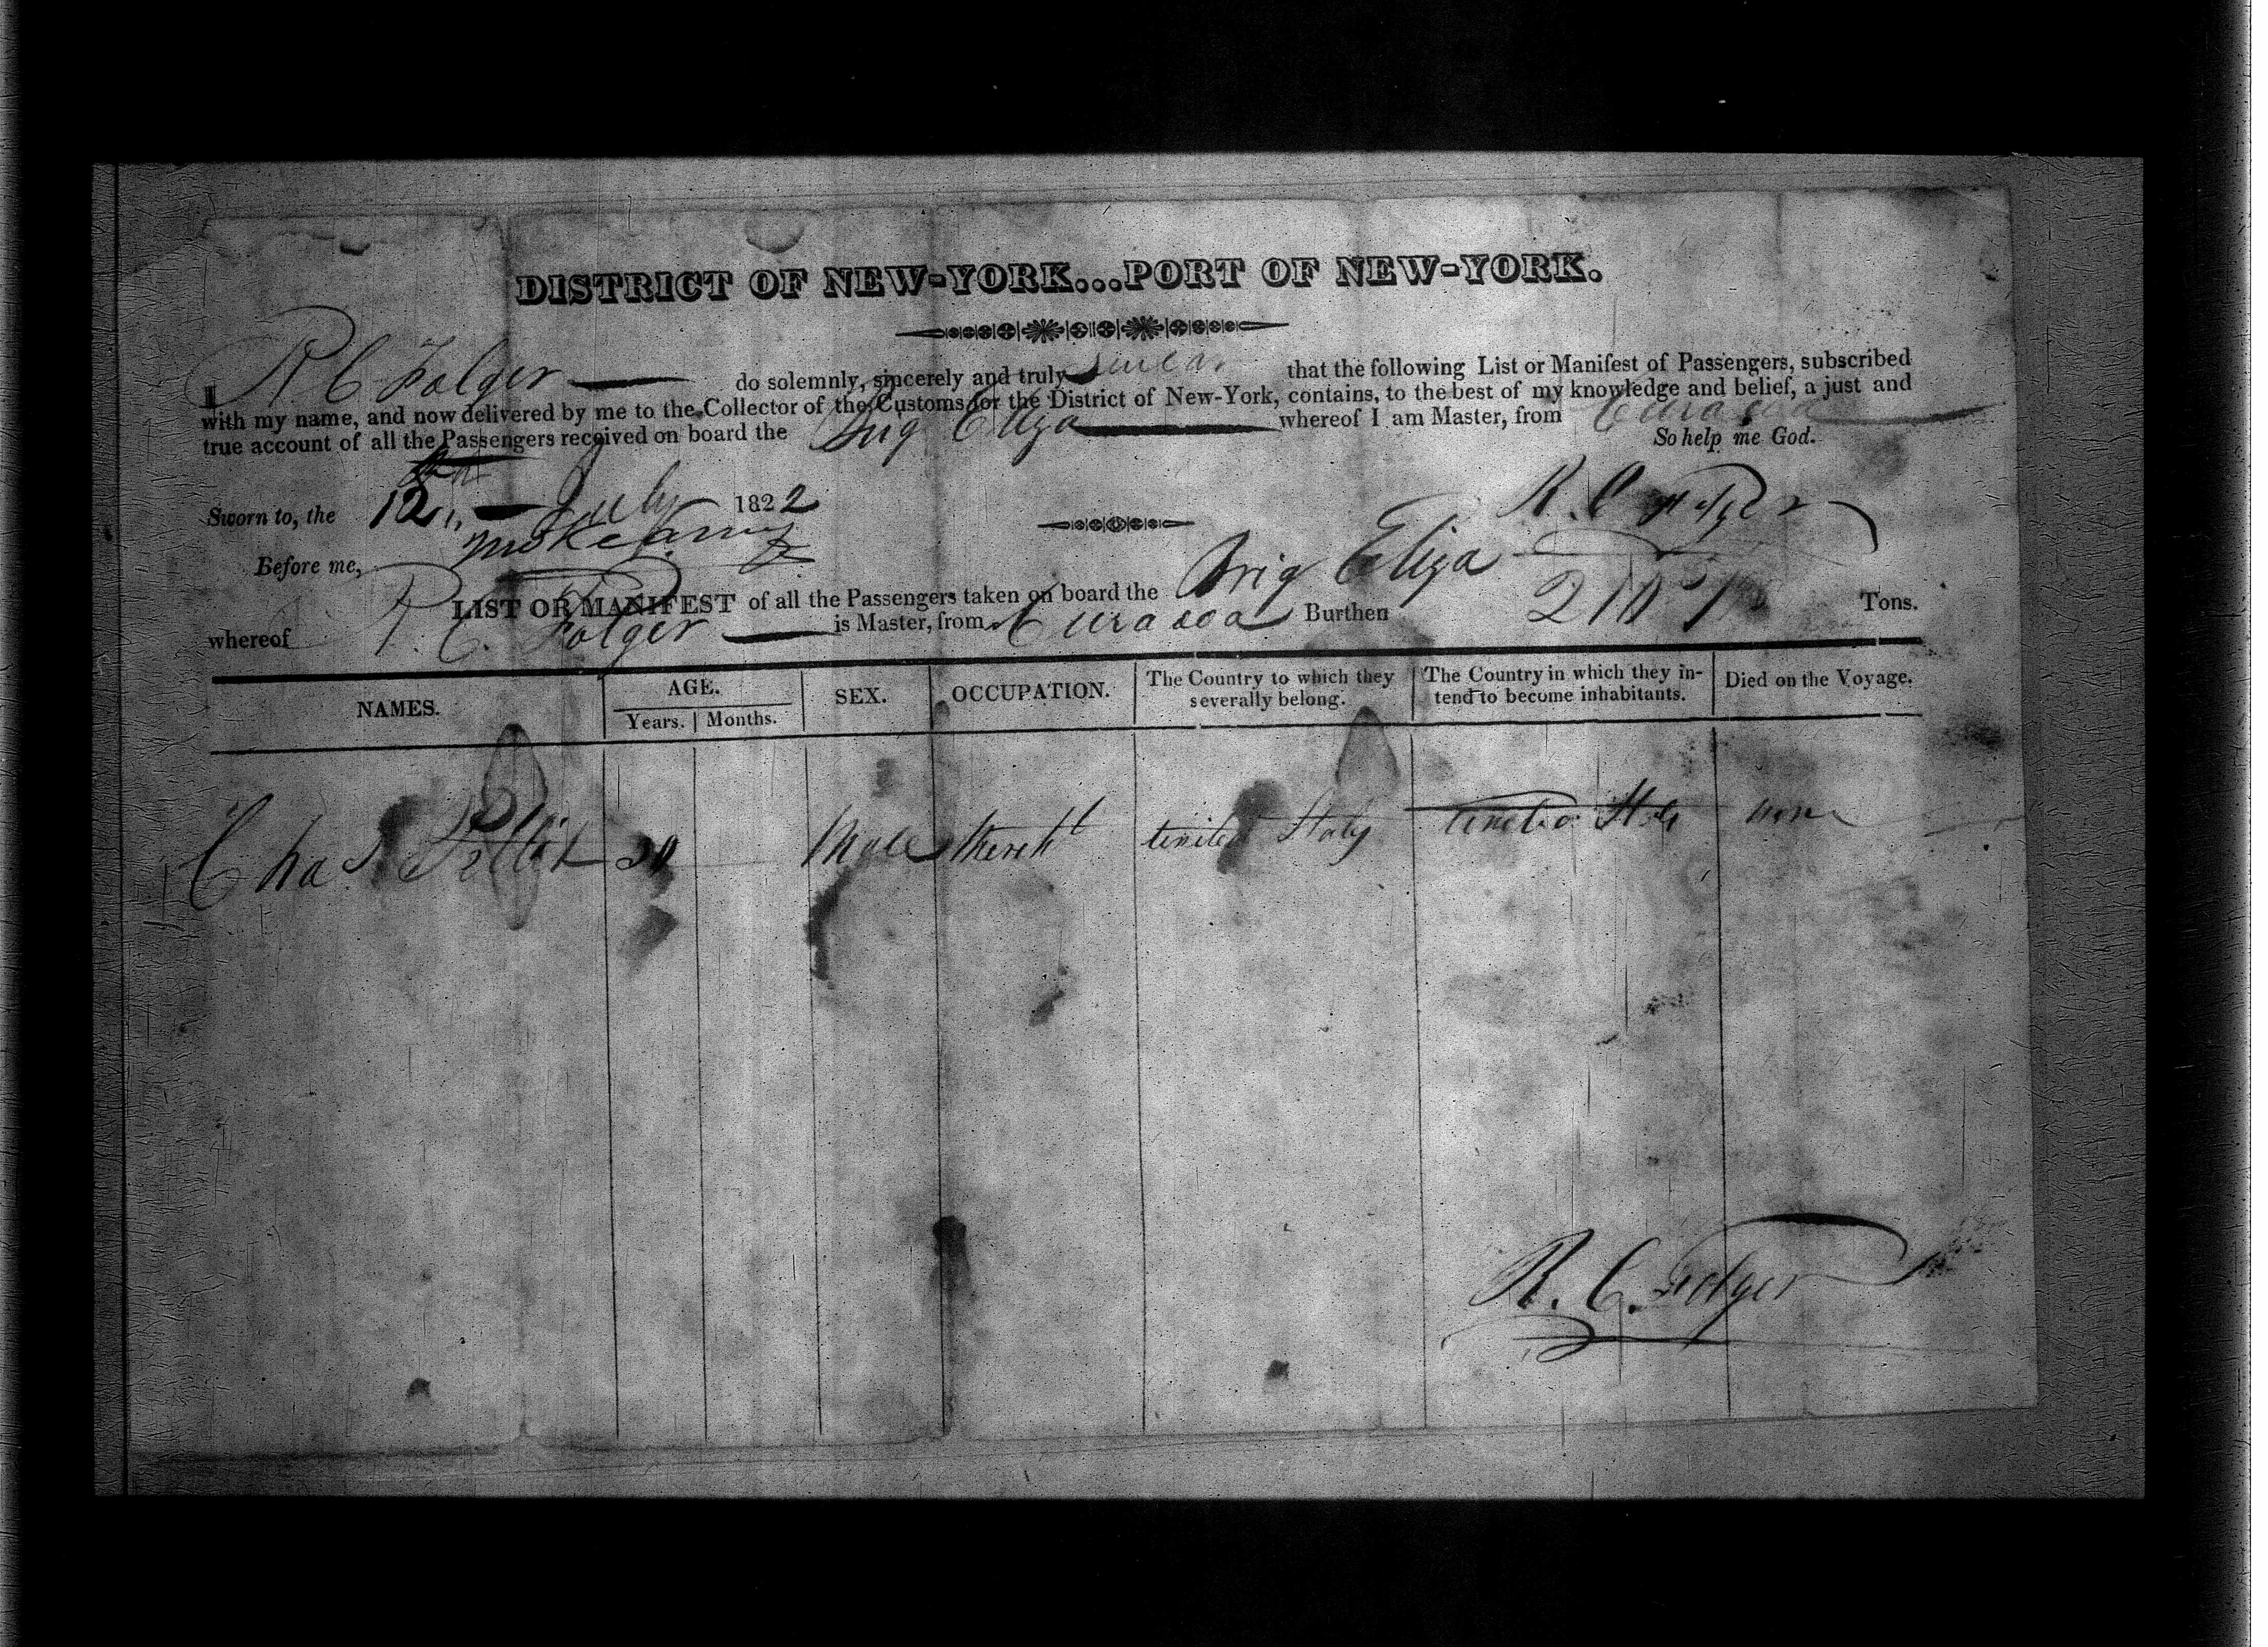 DISTRICT OF NEW-YORK...PORT OF NEW-YORK.
I R C Folger do solemnly, sincerely and truly swear that the following List or Manifest of Passengers, subscribed
with my name, and now delivered by me to the Collector of the Customs for the District of New-York, contains, to the best of my knowledge and belief, a just and
true account of all the Passengers received on board the Brig Eliza whereof I am Master, from Curacoa
So help me God.
Sworn to, the 12th July 1822
R. C. Folger
Before me,
LIST OR MANIFEST of all the Passengers taken on board the Brig Eliza
whereof R. C. Folger is Master, from Curacoa Burthen Tons.
NAMES. AGE. Years. Months. SEX. OCCUPATION. The Country to which they severally belong. The Country in which they intend to become inhabitants. Died on the Voyage.
Chas 30 Male Mercht United States United States none
R. C. Folger